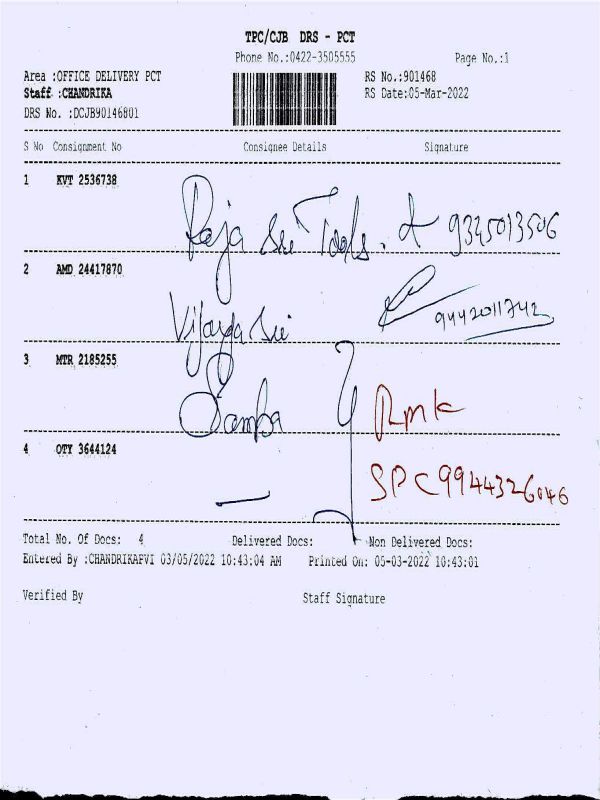 TPC/CJB DRS - PCT
Phone No.:0422-3505555 Page No.:1
Area :OFFICE DELIVERY PCT RS No.:901468
Staff :CHANDRIKA RS Date:05-Mar-2022
DRS No. :DCJB90146801
S No Consignment No Consignee Details Signature
1 KVT 2536738
Raja Sri Tools. 9345013506
2 AMD 24417870
Vijaya Sri 9442011742
3 MTR 2185255
Samba Rmk
4 OTY 3644124
SPC 9944326046
Total No. Of Docs: 4 Delivered Docs: Non Delivered Docs:
Entered By :CHANDRIKAPVI 03/05/2022 10:43:04 AM Printed On: 05-03-2022 10:43:01
Verified By Staff Signature